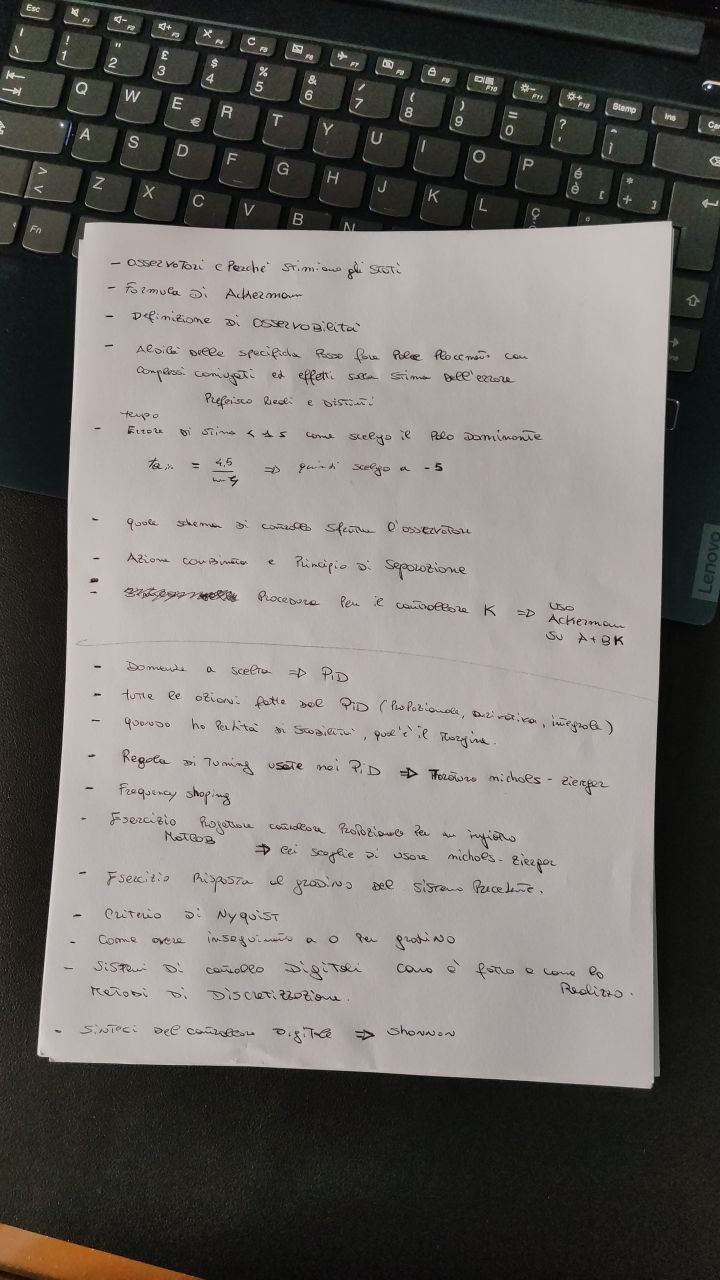 Esc F1 F2 F3 F4 F5 F6 F7 F8 F9 F10 F11 F12 Stamp Ins
\ | 1 ! 2 " 3 £ 4 $ 5 % 6 & 7 / 8 ( 9 ) 0 = ? ' ^ ì
Q W E € R T Y U I O P è é [ + * ]
A S D F G H J K L ç
< > Z X C V B N
Fn
Lenovo
- Osservatori e Perché stimiamo gli stati
- Formula di Ackerman
- Definizione di osservabilità
- Aldilà delle specifiche Posso fare Pole Placement con
complessi coniugati ed effetti sulla stima dell'errore
Preferisco Reali e Distinti
tempo
- Errore di stima < 1 s come scelgo il Polo Dominante
= 4,5 ⇒ quindi scelgo a -5
- quale schema di controllo sfrutta l'osservatore
- Azione combinata e Principio di Separazione
- Procedura Per il controllore K ⇒ uso
Ackerman
su A+BK
- Domanda a scelta ⇒ PiD
- tutte le azioni fatte dal PiD (Proporzionale, Derivativa, integrale)
- quando ho Perdita di stabilità, qual'è il margine.
- Regola di Tuning usate nei PiD ⇒ nichols - zierger
- Frequency shaping
- Esercizio Progettare controllore Proporzionale Per un
MATLAB ⇒ lei sceglie di usare nichols - zierger
- Esercizio Risposta al gradino del sistema Precedente.
- Criterio di Nyquist
- Come avere inseguimento a 0 Per gradino
- Sistemi Di controllo Digitali come è fatto e come lo
Realizzo.
Metodi di Discretizzazione.
- Sintesi del controllore Digitale ⇒ Shannon